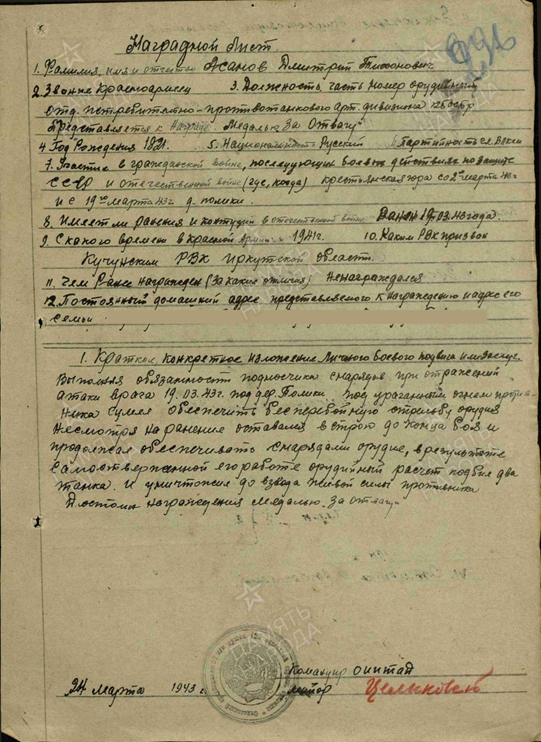 Наградной Лист
1. Фамилия, имя и отчество Асанов Дмитрий Тихонович
2. Звание Красноармеец 3. Должность, часть номер орудийный
отд. истребительно-противотанкового арт. дивизиона
Представляется к Награде Медаль "За Отвагу"
4. Год Рождения 1921. 5. Национальность Русский Партийность
7. Участие в гражданской войне, последующих боевых действиях по защите
СССР и отечественной войне (где, когда) со 2го марта 43г
и с 19го марта 43г д.
8. Имеет ли ранения и контузии в отечественной войне Ранен 19.03.43 года.
9. С какого времени в красной Армии с 1941г. 10. Каким РВК призван
РВК Иркутской области.
11. Чем Ранее награжден (За какие отличия) Ненаграждался
12. Постоянный домашний адрес представляемого к награждению и адрес его
семьи
1. Краткое, конкретное изложение личного боевого подвига или заслуг
Выполняя обязанности подносчика снарядов при отражений
атаки врага 19.03.43г. под дер. под ураганным огнем против-
ника сумел обеспечить бесперебойную стрельбу орудия
Несмотря на ранение оставался в строю до конца боя и
продолжал обеспечивать снарядами орудие, в результате
самоотверженной его работе орудийный расчет подбил два
танка. и уничтожил до взвода живой силы противника
Достоин награждения медалью. За отвагу
24 марта 1943 г.
Командир
майор
ПАМЯТЬ
НАРОДА